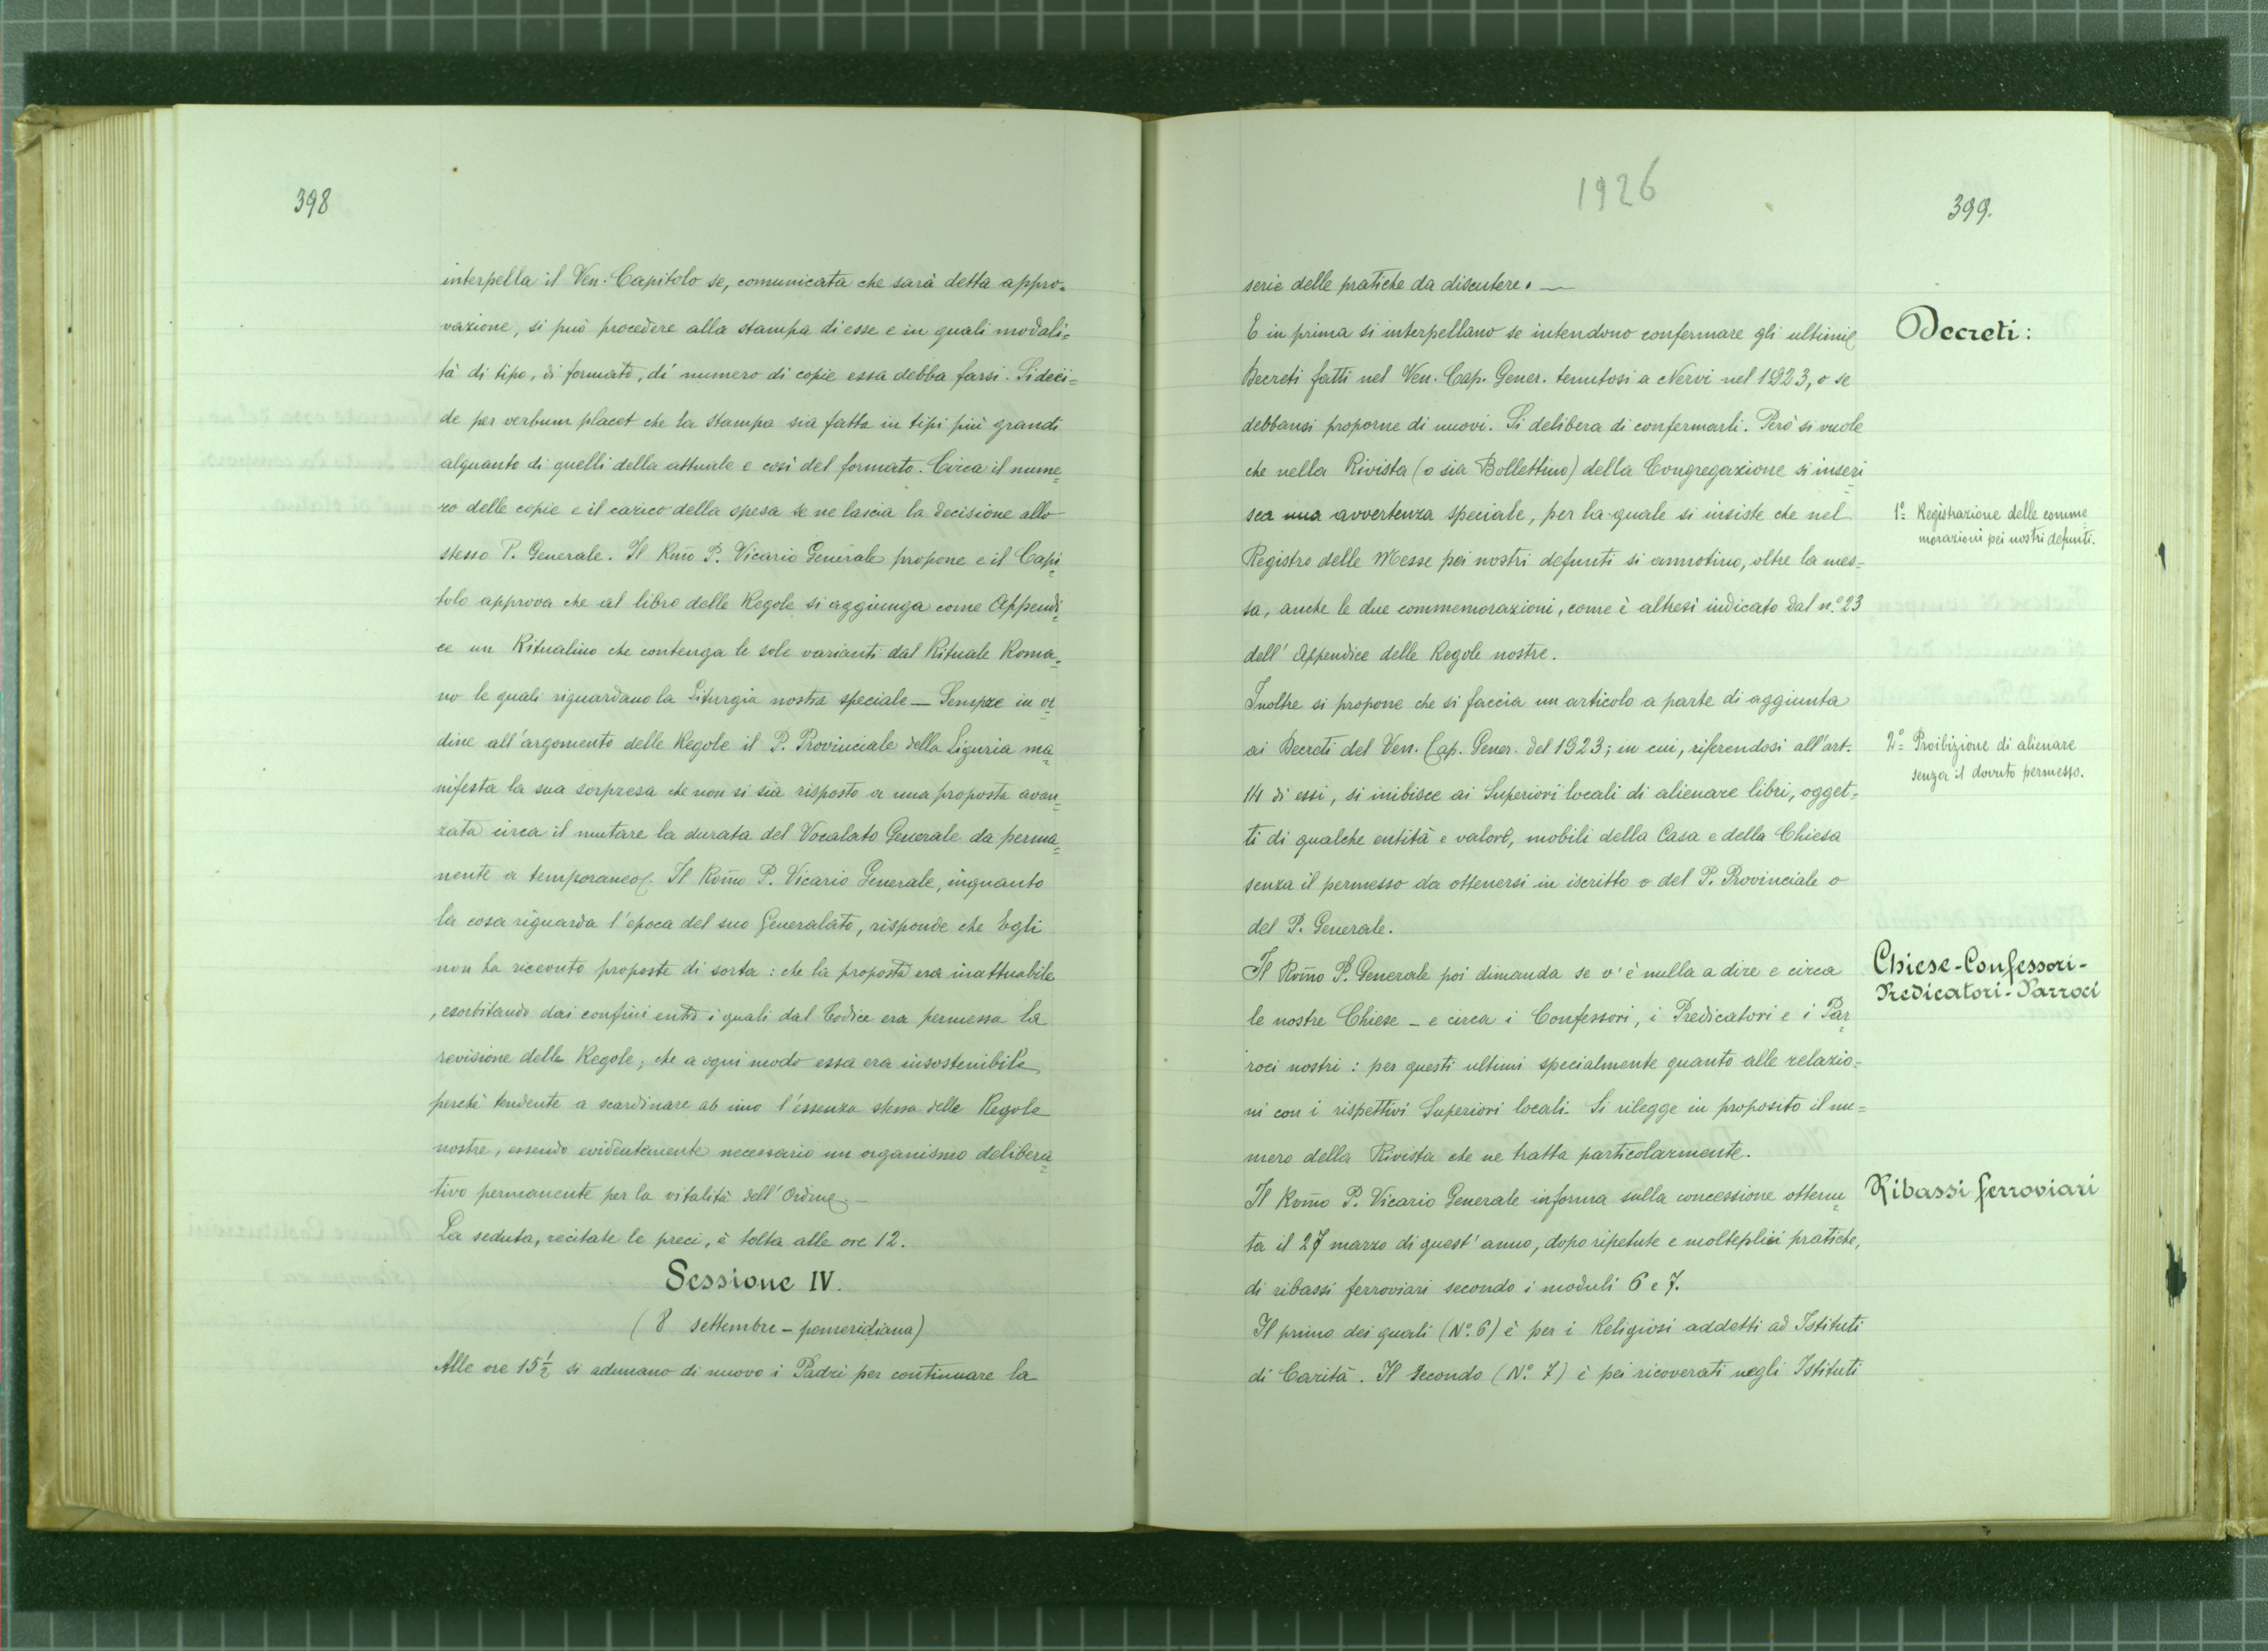 398
interpella il Ven. Capitolo se, comunicata che sarà detta appro=
vazione, si può procedere alla stampa di esse e in quali modali=
tà di tipo, di formato, di numero di copie essa debba farsi. Si deci=
de per verbum placet che la stampa sia fatta in tipi più grandi
alquanto di quelli della attuale e così del formato. Circa il nume=
ro delle copie e il carico della spesa se ne lascia la decisione allo
stesso P. Generale. Il Rm̃o P. Vicario Generale propone e il Capi=
tolo approva che al libro delle Regole si aggiunga come Appendi=
ce un Ritualino che contenga le sole varianti dal Rituale Roma=
no le quali riguardano la Liturgia nostra speciale — Sempre in or=
dine all'argomento delle Regole il P. Provinciale della Liguria ma=
nifesta la sua sorpresa che non si sia risposto a una proposta avan=
zata circa il mutare la durata del Vocalato Generale da perma=
nente a temporaneo. Il Rom̃o P. Vicario Generale, inquanto
la cosa riguarda l'epoca del suo Generalato, risponde che Egli
non ha ricevuto proposte di sorta: che la proposta era inattuabile
, esorbitando dai confini entro i quali dal Codice era permessa la
revisione delle Regole; che a ogni modo essa era insostenibile
perchè tendente a scardinare ab imo l'essenza stessa delle Regole
nostre, essendo evidentemente necessario un organismo delibera=
tivo permanente per la vitalità dell'Ordine. —
La seduta, recitate le preci, è tolta alle ore 12.
Sessione IV.
(8 settembre – pomeridiana)
Alle ore 15½ si adunano di nuovo i Padri per continuare la
1926
399.
serie delle pratiche da discutere. —
E in prima si interpellano se intendono confermare gli ultimi
Decreti fatti nel Ven. Cap. Gener. tenutosi a Nervi nel 1923, o se
debbansi proporne di nuovi. Si delibera di confermarli. Però si vuole
che nella Rivista (o sia Bollettino) della Congregazione si inseri=
sca una avvertenza speciale, per la quale si insiste che nel
Registro delle Messe pei nostri defunti si annotino, oltre la mes=
sa, anche le due commemorazioni, come è altresì indicato dal n.º 23
dell'Appendice delle Regole nostre.
Inoltre si propone che si faccia un articolo a parte di aggiunta
ai Decreti del Ven. Cap. Gener. del 1923; in cui, riferendosi all'art.
14 di essi, si inibisce ai Superiori locali di alienare libri, ogget=
ti di qualche entità e valore, mobili della Casa e della Chiesa
senza il permesso da ottenersi in iscritto o del P. Provinciale o
del P. Generale.
Il Rom̃o P. Generale poi dimanda se v'è nulla a dire e circa
le nostre Chiese – e circa i Confessori, i Predicatori e i Par=
roci nostri: per questi ultimi specialmente quanto alle relazio=
ni con i rispettivi Superiori locali. Si rilegge in proposito il nu=
mero della Rivista che ne tratta particolarmente.
Il Rom̃o P. Vicario Generale informa sulla concessione ottenu=
ta il 27 marzo di quest'anno, dopo ripetute e molteplici pratiche,
di ribassi ferroviari secondo i moduli 6 e 7.
Il primo dei quali (Nº. 6) è per i Religiosi addetti ad Istituti
di Carità. Il secondo (Nº. 7) è pei ricoverati negli Istituti
Decreti:
1º= Registrazione delle comme=
morazioni pei nostri defunti.
2º= Proibizione di alienare
senza il dovuto permesso.
Chiese-Confessori-
Predicatori-Parroci
Ribassi ferroviari